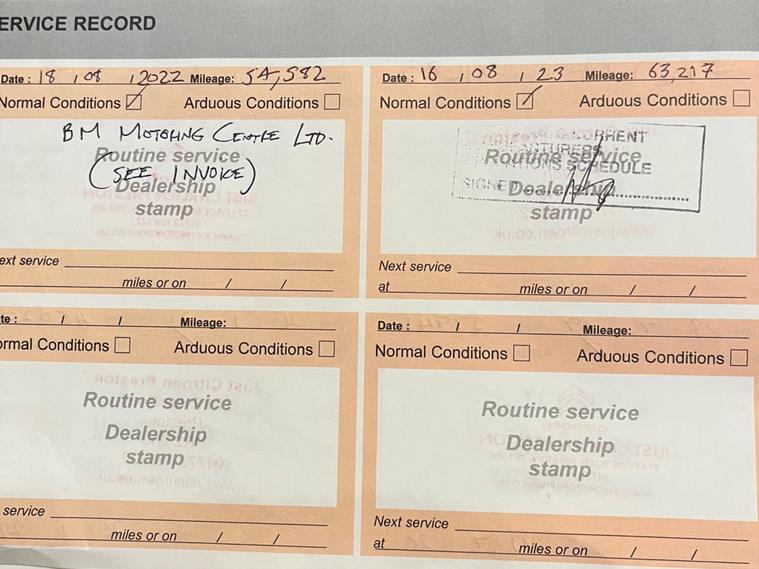 ERVICE RECORD
Date : 18 / 08 / 2022 Mileage: 54,582
Normal Conditions ☑ Arduous Conditions ☐
BM MOTORING CENTRE LTD.
Routine service
(SEE INVOICE)
Dealership
stamp
ext service
miles or on / /
Date : 16 / 08 / 23 Mileage: 63,217
Normal Conditions ☑ Arduous Conditions ☐
Routine service
SCHEDULE
SIGNED
Dealership
stamp
Next service
at miles or on / /
te : / / Mileage:
ormal Conditions ☐ Arduous Conditions ☐
Routine service
Dealership
stamp
service
miles or on / /
Date : / / Mileage:
Normal Conditions ☐ Arduous Conditions ☐
Routine service
Dealership
stamp
Next service
at miles or on / /